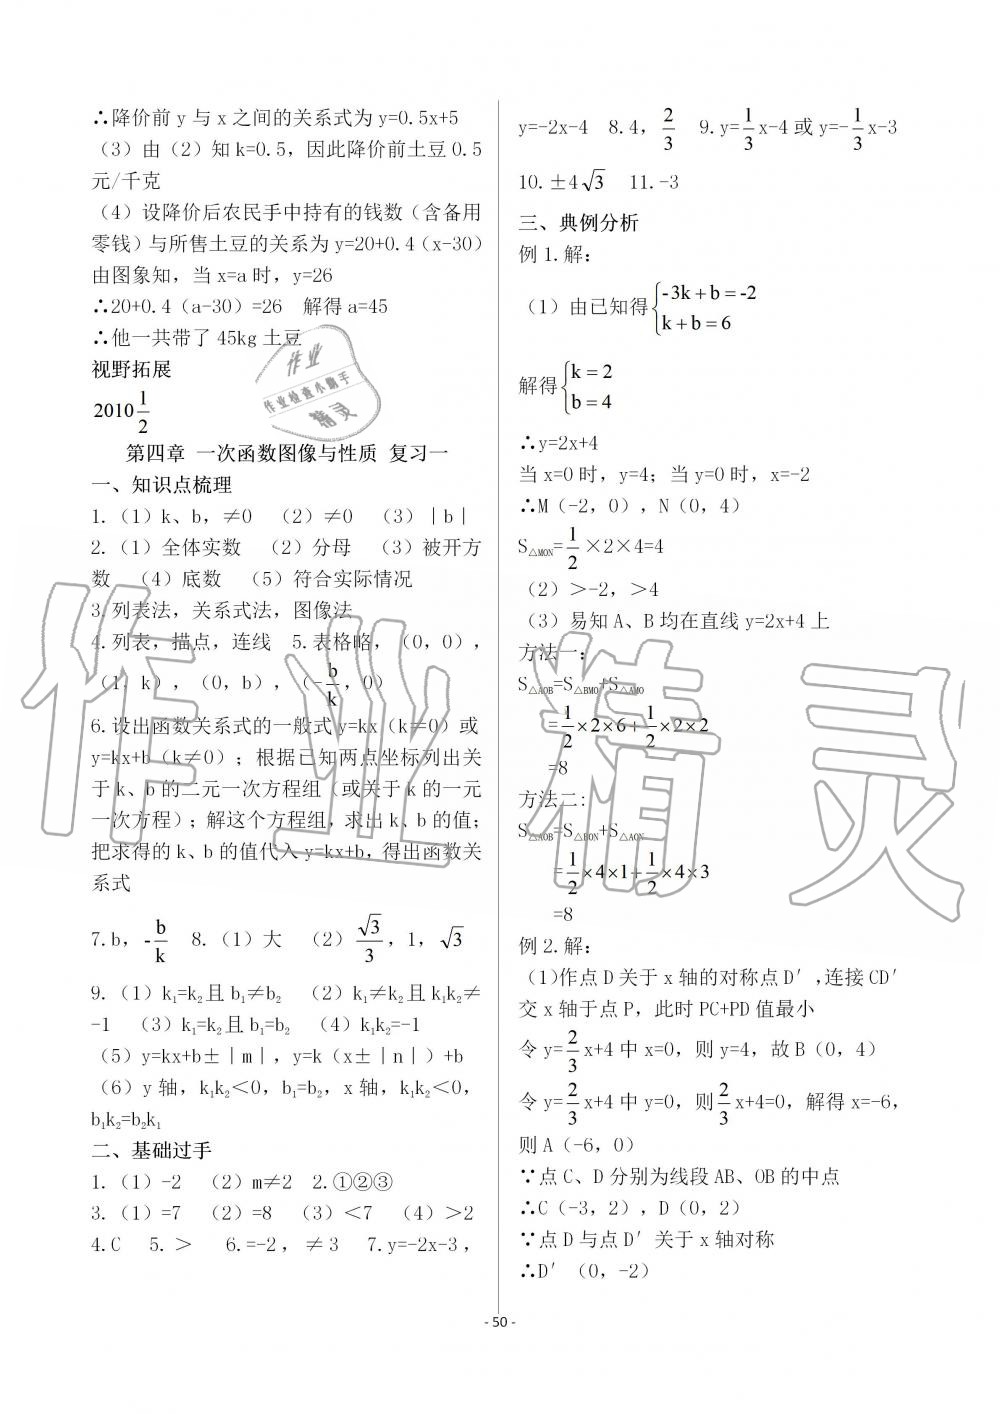 ∴降价前 y 与 x 之间的关系式为 y=0.5x+5
（3）由（2）知 k=0.5，因此降价前土豆 0.5
元/千克
（4）设降价后农民手中持有的钱数（含备用
零钱）与所售土豆的关系为 y=20+0.4（x-30）
由图象知，当 x=a 时，y=26
∴20+0.4（a-30）=26　解得 a=45
∴他一共带了 45kg 土豆
视野拓展
2010 1/2
第四章 一次函数图像与性质 复习一
一、知识点梳理
1.（1）k、b，≠0　（2）≠0　（3）｜b｜
2.（1）全体实数　（2）分母　（3）被开方
数　（4）底数　（5）符合实际情况
3.列表法，关系式法，图像法
4.列表，描点，连线　5.表格略，（0，0），
（1，k），（0，b），（-b/k，0）
6.设出函数关系式的一般式 y=kx（k≠0）或
y=kx+b（k≠0）；根据已知两点坐标列出关
于 k、b 的二元一次方程组（或关于 k 的一元
一次方程）；解这个方程组，求出 k、b 的值；
把求得的 k、b 的值代入 y=kx+b，得出函数关
系式
7.b，-b/k　8.（1）大　（2）√3/3，1，√3
9.（1）k₁=k₂且 b₁≠b₂　（2）k₁≠k₂且 k₁k₂≠
-1　（3）k₁=k₂且 b₁=b₂　（4）k₁k₂=-1
（5）y=kx+b±｜m｜，y=k（x±｜n｜）+b
（6）y 轴，k₁k₂＜0，b₁=b₂，x 轴，k₁k₂＜0，
b₁k₂=b₂k₁
二、基础过手
1.（1）-2　（2）m≠2　2.①②③
3.（1）=7　（2）=8　（3）＜7　（4）＞2
4.C　5.＞　6.=-2，≠3　7.y=-2x-3，
y=-2x-4　8.4，2/3　9.y=1/3x-4 或 y=-1/3x-3
10.±4√3　11.-3
三、典例分析
例 1.解：
（1）由已知得{-3k+b=-2
k+b=6
解得{k=2
b=4
∴y=2x+4
当 x=0 时，y=4；当 y=0 时，x=-2
∴M（-2，0），N（0，4）
S△MON=1/2×2×4=4
（2）＞-2，＞4
（3）易知 A、B 均在直线 y=2x+4 上
方法一：
S△AOB=S△BMO+S△AMO
=1/2×2×6+1/2×2×2
=8
方法二：
S△AOB=S△BON+S△AON
=1/2×4×1+1/2×4×3
=8
例 2.解：
（1）作点 D 关于 x 轴的对称点 D′，连接 CD′
交 x 轴于点 P，此时 PC+PD 值最小
令 y=2/3x+4 中 x=0，则 y=4，故 B（0，4）
令 y=2/3x+4 中 y=0，则2/3x+4=0，解得 x=-6，
则 A（-6，0）
∵点 C、D 分别为线段 AB、OB 的中点
∴C（-3，2），D（0，2）
∵点 D 与点 D′关于 x 轴对称
∴D′（0，-2）
- 50 -
作业
作业检查小助手
精灵
作业精灵